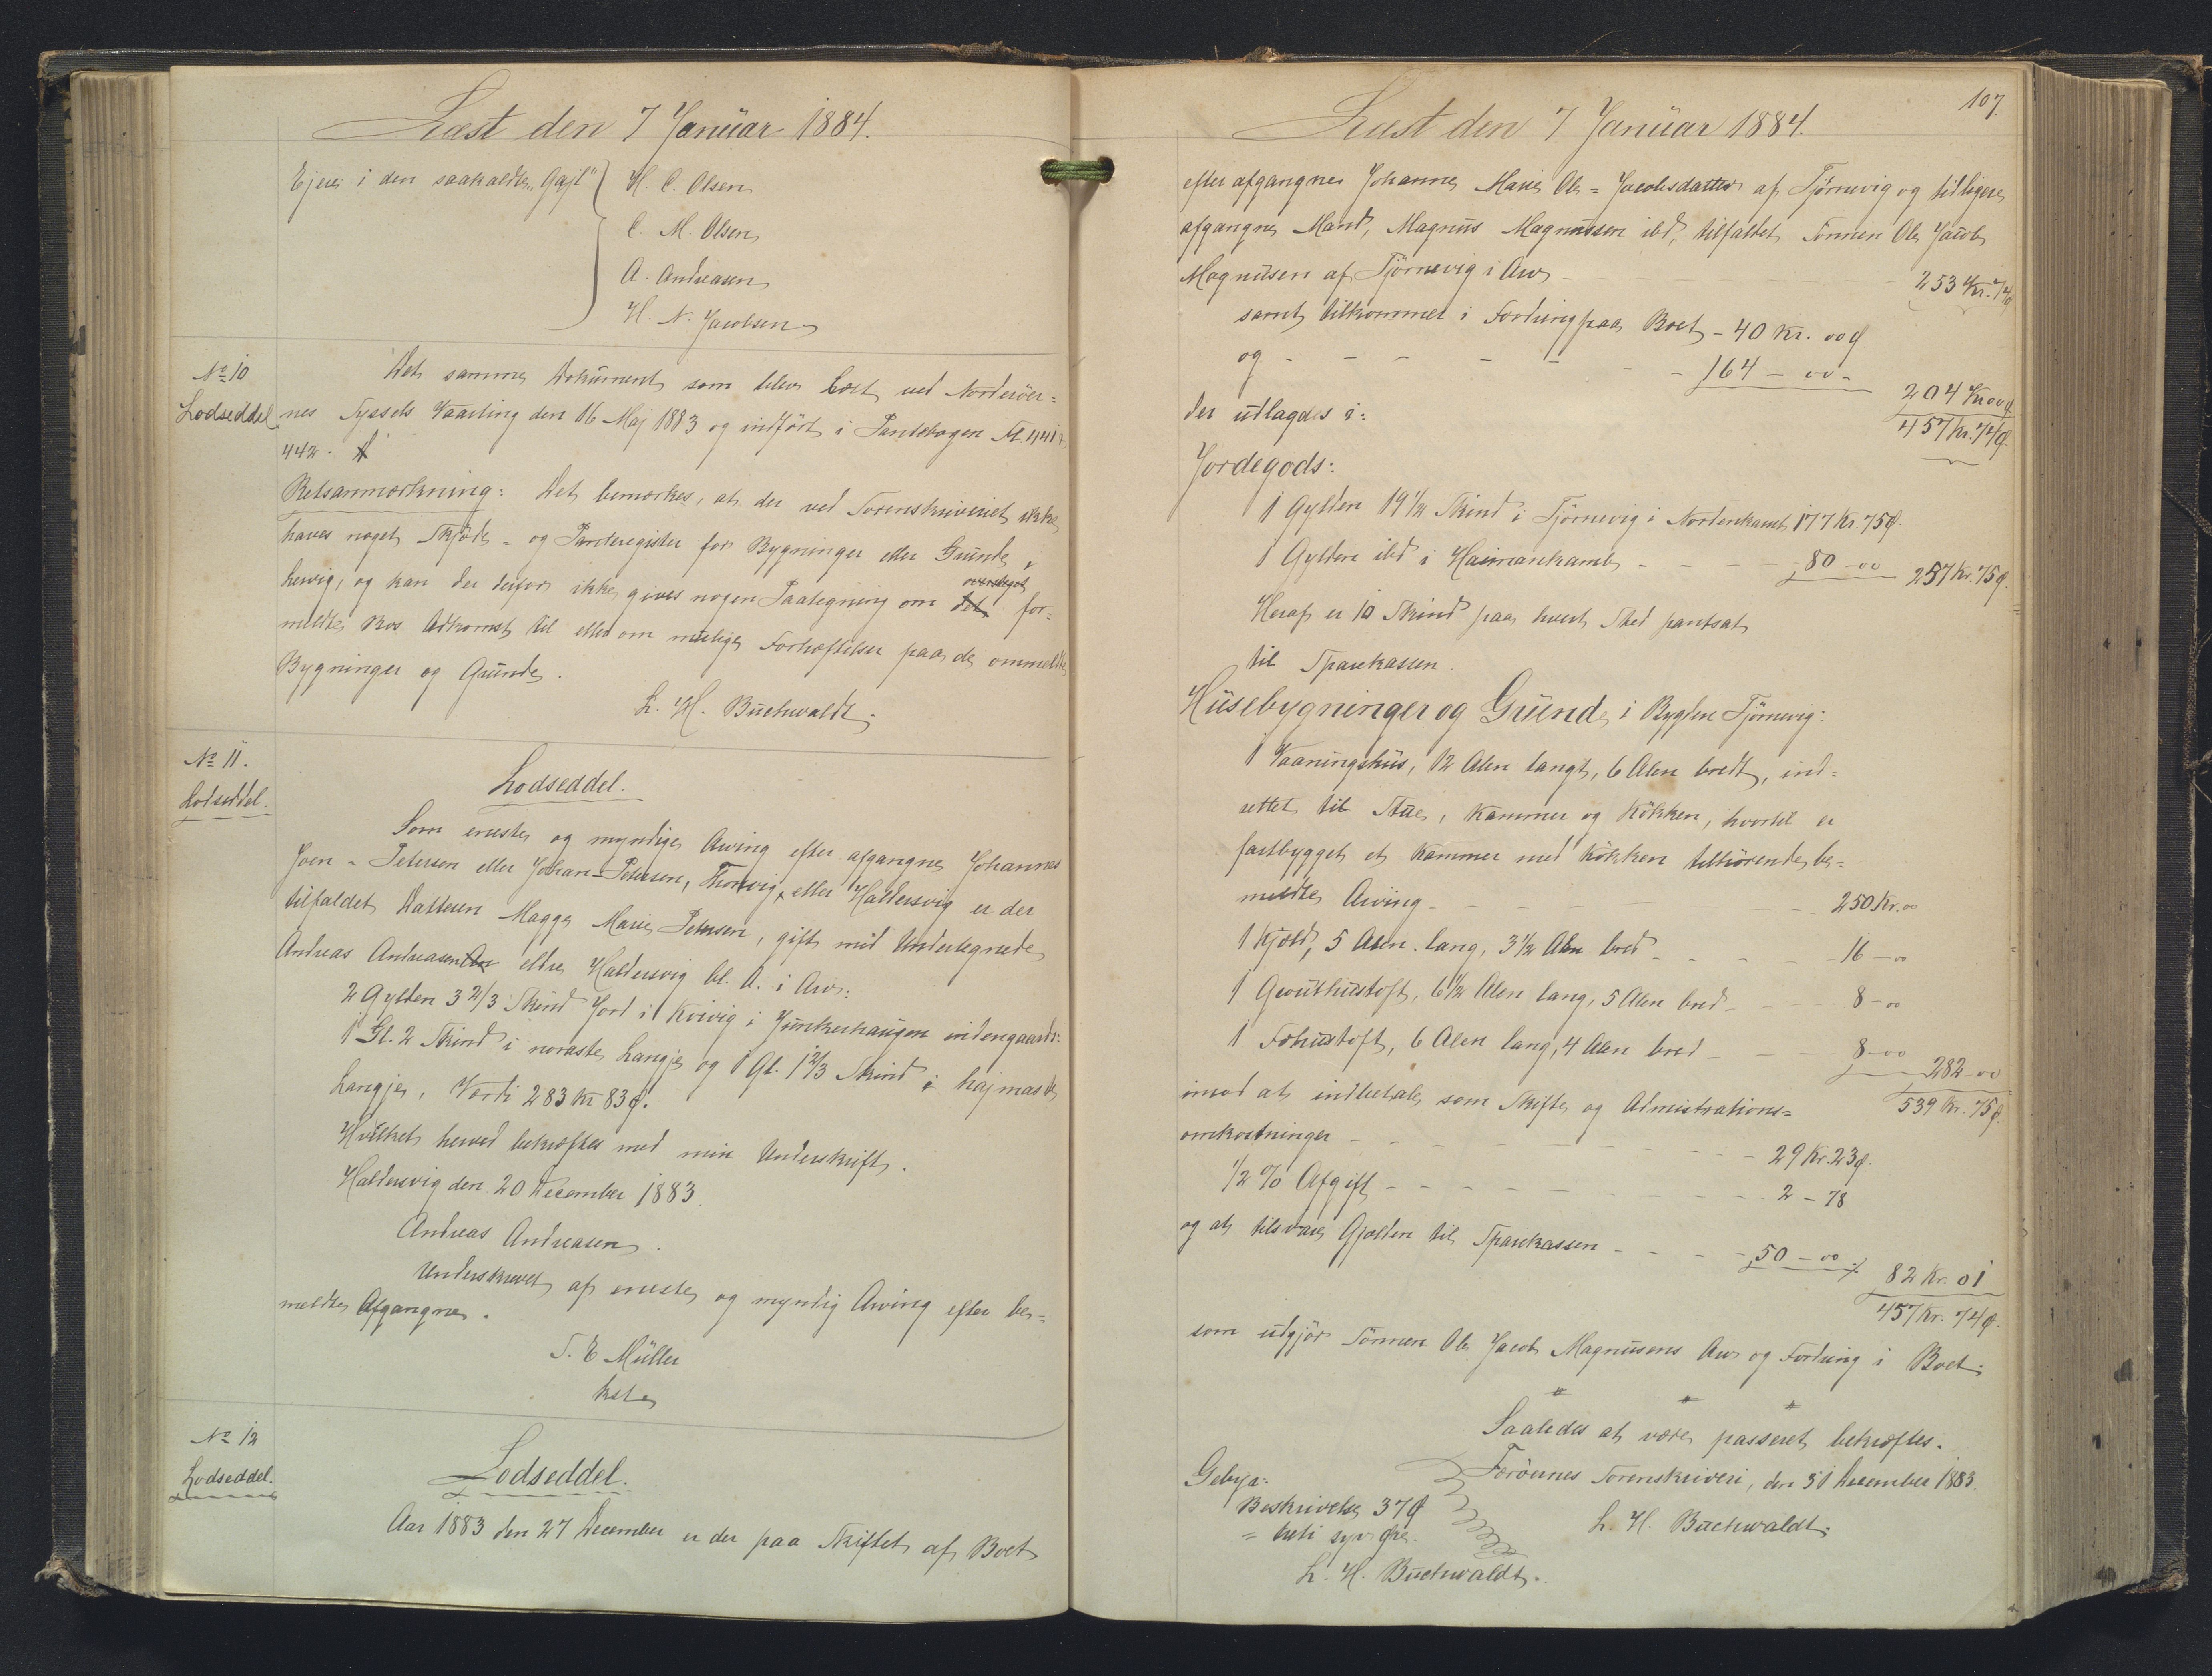 Læst den 7 Januar 1884.
Ejere i den saakaldte "Gajl" H. C. Olsen
C. M. Olsen
A. Andreasen
H. N. Jacobsen
No 10
Lodseddel
Det samme Dokument som blev læst ved Norderöer=
nes Syssels Vaarting den 16 Maj 1883 og indført i Pantebogen Fol. 441 &
442.
Retsanmærkning: Det bemærkes, at der ved Sorenskriveriet ikke
haves noget Skjøde- og Panteregister for Bygninger eller Grunde i
hervig, og kan der derfor ikke gives nogen Paategning om det ovrebejet for=
meldte Bos Adkomst til eller om mulige Forhæftelser paa de ommeldte
Bygninger og Grunde.
L. H. Buchwaldt.
No 11.
Lodseddel.
Lodseddel.
Som eneste og myndige Arving efter afgangne Johannes
Joen-Petersen eller Johan-Petersen, eller Haldersvig er der
tilfaldet Datteren Magga Marie Petersen, gift med Undertegnede
Andreas Andreasen eldre Haldersvig bl. A. i Arv:
2 Gylden 3 2/3 Skind Jord i Kvivig i Junkerhaugen indengaards:
1 Gl. 2 Skind i noraste Langje og 1 Gl. 1 2/3 Skind i hajmaste
Langje, Værdi 283 Kr 83 Ø.
Hvilket herved bekræftes med min Underskrift.
Haldersvig den 20 December 1883.
Andreas Andreasen.
Underskrevet af eneste og myndig Arving efter be=
meldte Afgangne.
S. E Müller
kst.
No 12
Lodseddel.
Lodseddel.
Aar 1883 den 27 December er der paa Skiftet af Boet
107.
Læst den 7 Januar 1884.
efter afgangne Johanne Marie Ole=Jacobsdatter af Tjørnevig og tidligere
afgangne Mand, Magnus Magnussen ibd, tilfaldet Sønnen Ole Jacob
Magnusen af Tjørnevig i Arv - 253 Kr. 74 Ø
samt tilkommet i Fordring paa Boet - 40 Kr. 00 Ø.
og - - - - - - 164 - 00 - 204 Kr 00 Ø
457 Kr. 74 Ø.
der udlagdes i:
Jordegods:
1 Gylden 19 1/2 Skind i Tjørnevig i Nordenkamb 177 Kr. 75 Ø.
1 Gylden ibd i Haimarekamb - - - - 80 - 00 257 Kr. 75 Ø.
Heraf er 10 Skind paa hvert Sted pantsat
til Sparekassen.
Husebygninger og Grunde i Bygden Tjørnevig:
1 Vaaningshus, 12 Alen langt, 6 Alen bredt, ind=
rettet til Stue, Kammer og Kökken, hvortil er
fastbygget et Kammer med Kökken tilhörende be=
meldte Arving - - - - 250 Kr. 00
1 Hjæld, 5 Alen lang, 3 1/2 Alen bred - - - 16 - 00
1 Grouthustoft, 6 1/2 Alen lang, 5 Alen bred - - 8 - 00
1 Fohustoft, 6 Alen lang, 4 Alen bred - - - 8 - 00 282 - 00
539 Kr. 75 Ø.
imod at indbetale som Skifte og Admistrations=
omkostninger - - - - - 29 Kr. 23 Ø.
1/2 % Afgift - - - - - 2 - 78
og at tilsvare Gjælden til Sparekassen - - - - 50 - 00 82 Kr. 01
457 Kr. 74 Ø.
som udgjør Sönnen Ole Jacob Magnusens Arv og Fordring i Boet.
Saaledes at være passeret bekræftes.
Færöernes Sorenskriveri, den 31 December 1883.
L. H. Buchwaldt.
Gebyr:
Beskrivelse 37 Ø
= treti syv Øre.
L. H. Buchwaldt.